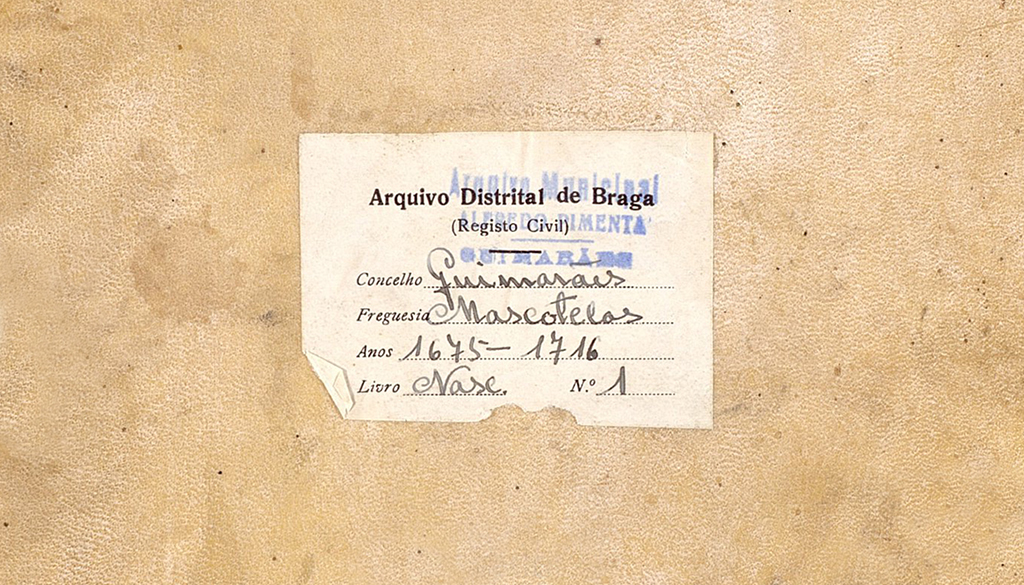 Arquivo Municipal
Arquivo Distrital de Braga
ALFREDO PIMENTA
(Registo Civil)
GUIMARÃES
Concelho Guimarães
Freguesia Mascotelos
Anos 1675 — 1716
Livro Nasc. N.º 1